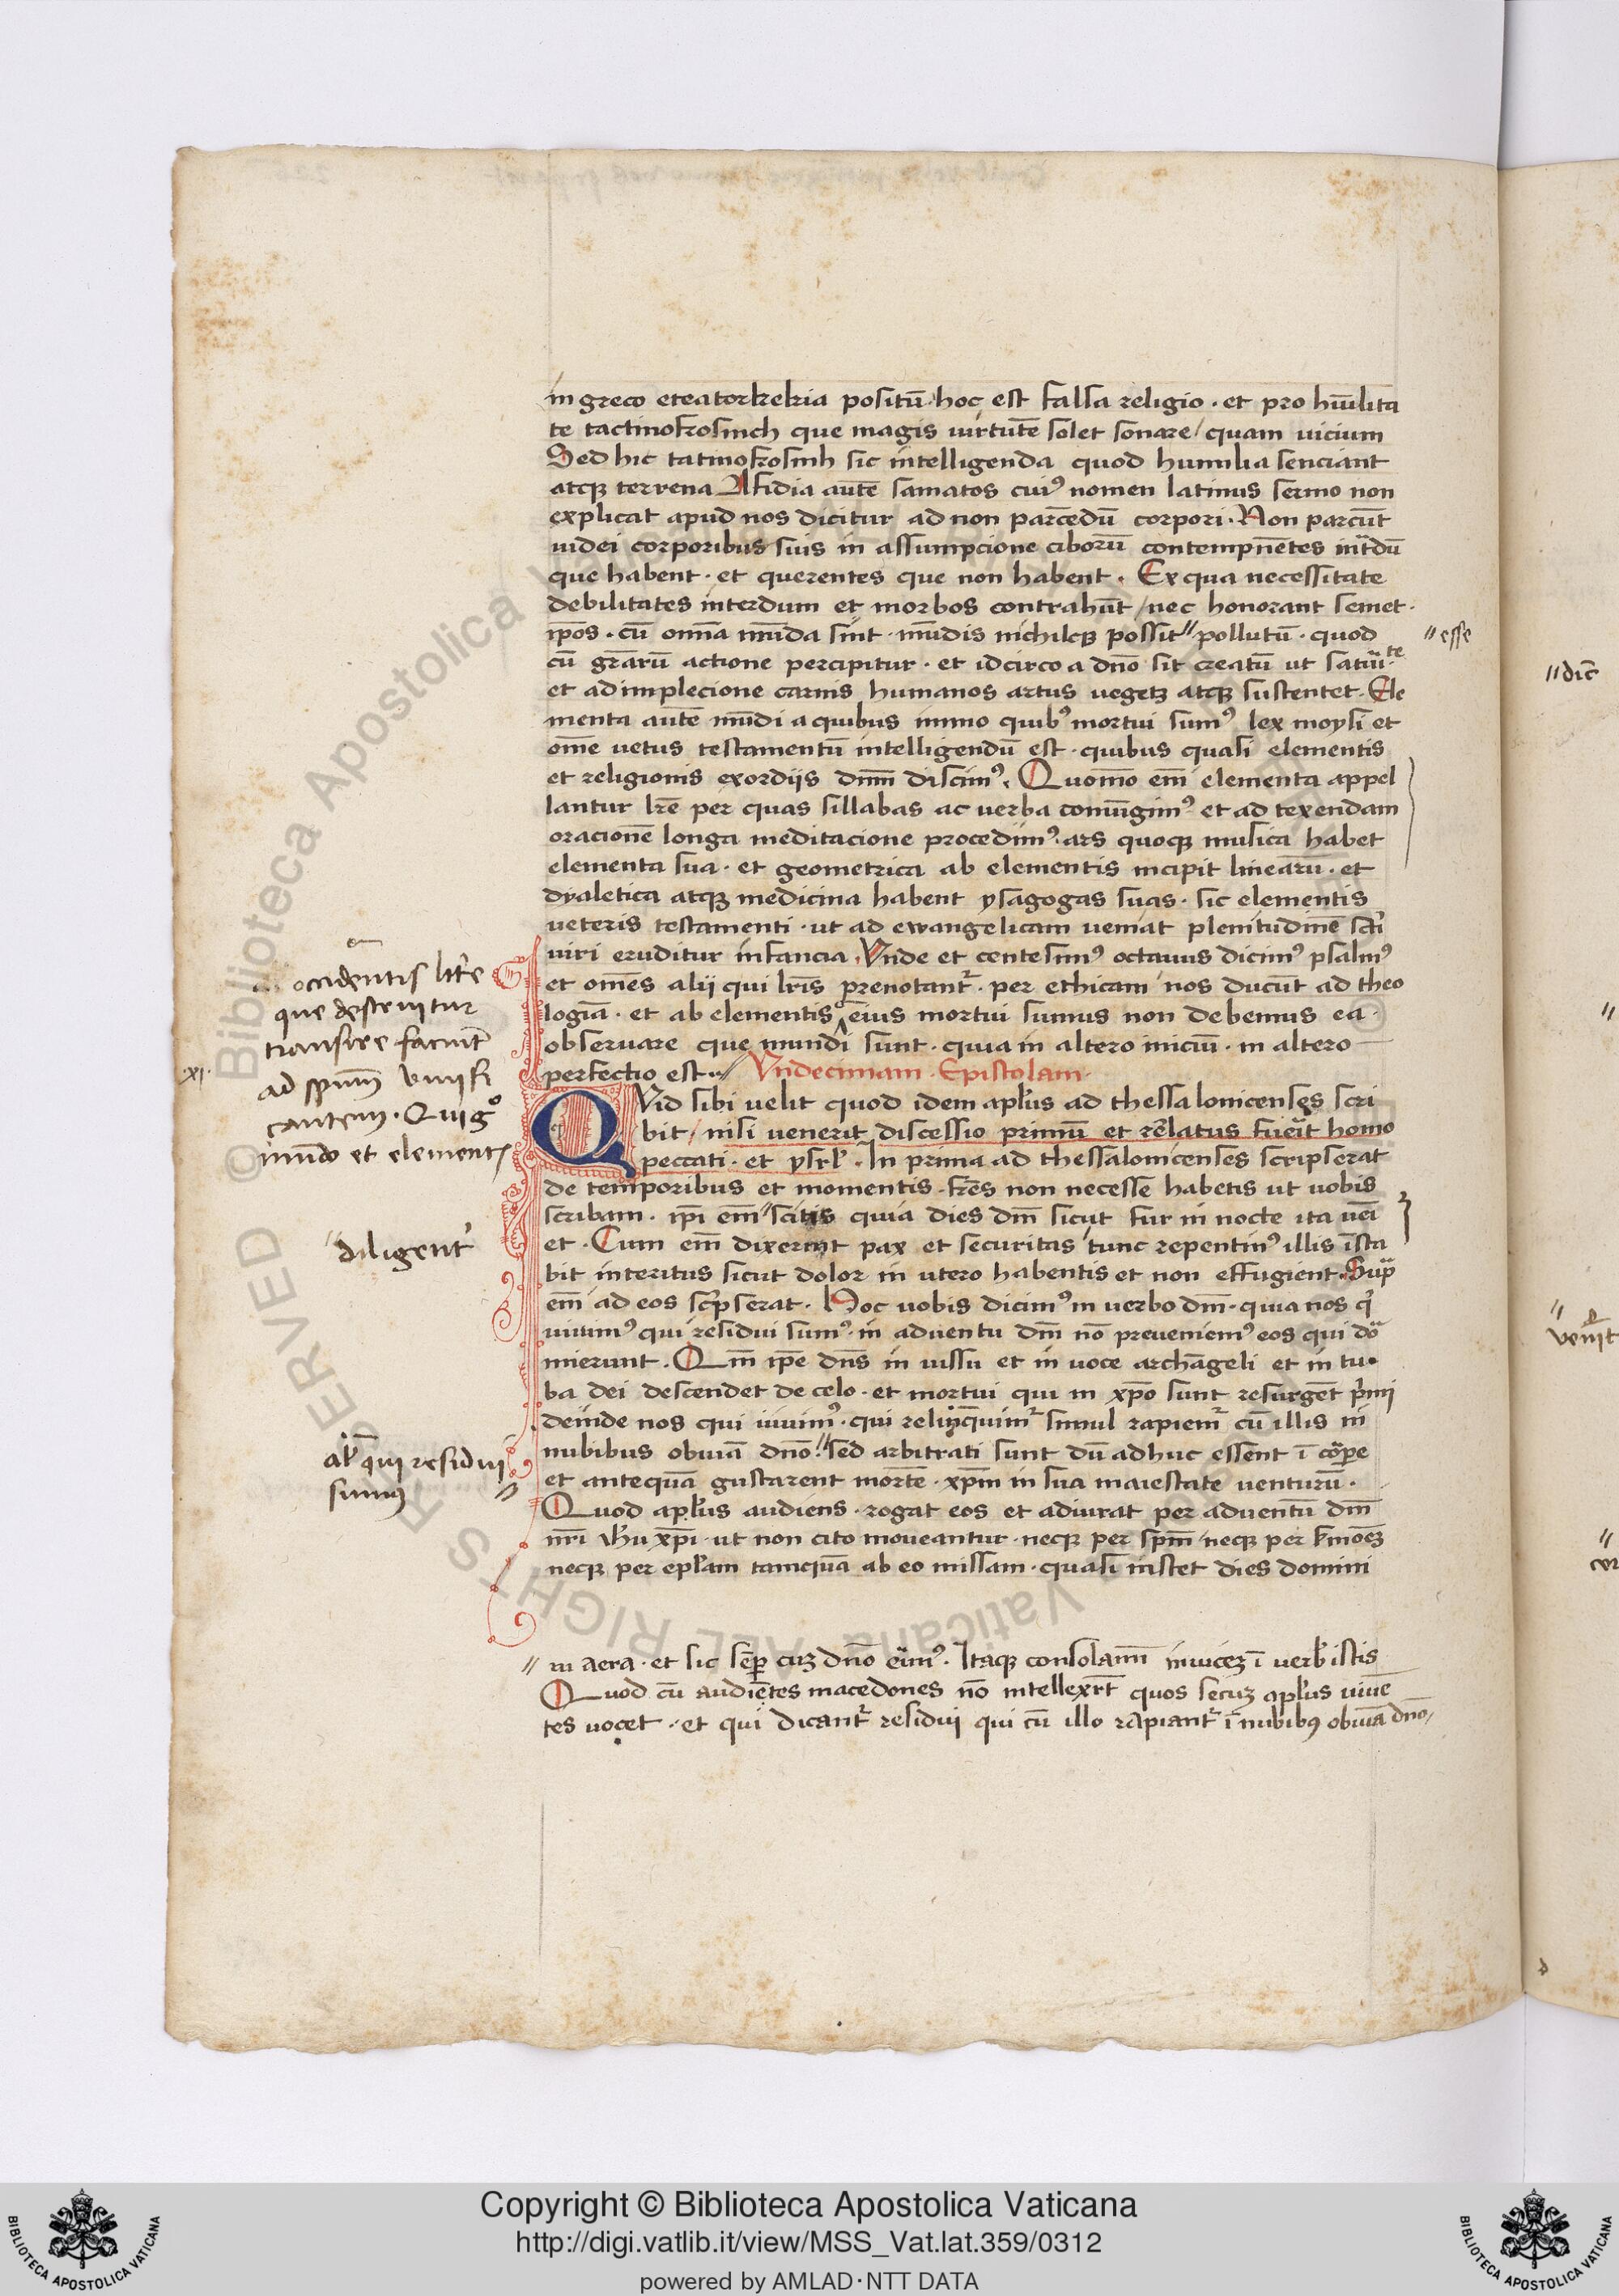 in greco eteatorkekia positū hoc est falsa religio · et pro hūilita
te tactinofrosinch que magis uirtutē solet sonare / quam uicium
Sed hic tatinofrosinh sic intelligenda quod humilia senciant
atqꝫ terrena Afidia autē samatos cuiꝰ nomen latinus sermo non
explicat apud nos dicitur ad non parcēdū corpori · Non parcūt
iudei corporibus suis in assumpcione ciborū contempnētes int̄dū
que habent · et querentes que non habent · Ex qua necessitate
debilitates interdum et morbos contrahūt / nec honorant semet ·
ip̄os · cū om̄a mūda sint · mūdis nichilqꝫ possit // pollutū · quod
// esse
cū gr̄arū actione percipitur · et idcirco a dn̄o sit creatū ut
et ad implecione carnis humanos artus uegetꝫ atqꝫ sustentet · Ele
menta autē mūdi a quibus immo quibꝰ mortui sumꝰ lex moysi et
om̄e uetus testamentū intelligendū est · quibus quasi elementis
et religionis exordijs dīm discimꝰ · Quom̄o em̄ elementa appel
lantur lr̄e per quas sillabas ac uerba coniūgimꝰ et ad texendam
oracionē longa meditacione procedimꝰ · ars quoqꝫ musica habet
elementa sua · et geometrica ab elementis incipit linearū · et
dyaletica atqꝫ medicina habent ysagogas suas · sic elementis
ueteris testamenti · ut ad ewangelicam ueniat plenitudinē sc̄i
uiri eruditur infancia · Vnde et centesimꝰ octauus dicimꝰ psalmꝰ
et om̄es alij qui lr̄is prenotant᷑ · per ethicam nos ducūt ad theo
logiā · et ab elementis eius mortui sumus non debemus ea ·
obseruare que mundi sunt · quia in altero iniciū · in altero
perfectio est · // Vndecimam · Epistolam ·
occidentis litr̄e
que destruitur
transire faciūt
ad sp̄um viuifi
cantem · Qui gͦ
mūdo et element
·xi·
QVid sibi uelit quod idem apl̄us ad thessalonicenses scri
bit / nisi uenerit discessio primū et reuelatus fuerit homo
peccati · et
In prima ad thessalonicenses scripserat
de temporibus et momentis · fr̄es non necesse habetis ut uobis
scribam · ip̄i em̄ // scitis quia dies dn̄i sicut fur in nocte ita ueī
et · Cum em̄ dixerint pax et securitas tunc repentinꝰ illis īsta
// diligent᷑
bit interitus sicut dolor in utero habentis et non effugient · Supͣ
em̄ ad eos scͥpserat · Hoc uobis dicimꝰ in uerbo dn̄i · quia nos qͥ
uiuimꝰ qui residui sumꝰ · in aduentu dn̄i nō preueniemꝰ eos qui dor
mierunt · Qm̄ ip̄e dn̄s in iussu et in uoce archāgeli et in tu
ba dei descendet de celo · et mortui qui in xp̄o sunt resurgēt pͥmi
deinde nos qui uiuimꝰ · qui relinquim᷑ simul rapiem᷑ cū illis in
nubibus obuiā dn̄o // sed arbitrati sunt dū adhuc essent ī corpore
et antequā gustarent mortē · xp̄m in sua maiestate venturū ·
qui residui
sumꝰ //
Quod apl̄us audiens · rogat eos et adiurat per aduentū dn̄i
nr̄i ih̄u xp̄i · ut non cito moueantur · neqꝫ per sp̄m · neqꝫ per
neqꝫ per epl̄am tamquā ab eo missam · quasi instet dies domini
// in aera · et sic semp̄ cuꝫ dn̄o erimꝰ · Itaqꝫ consolamī inuiceꝫ ī verb̄ istis
Quod cū audiētes macedones nō intellexr̄t quos secuꝫ apl̄us uiuē
tes uocet · et qui dicant᷑ residui qui cū illo rapiant᷑ ī nubibꝰ obuiā dn̄o /
//dic̄
//
Copyright © Biblioteca Apostolica Vaticana
http://digi.vatlib.it/view/MSS_Vat.lat.359/0312
powered by AMLAD·NTT DATA
BIBLIOTECA APOSTOLICA VATICANA
BIBLIOTECA APOSTOLICA VATICANA
© Biblioteca Apostolica Vaticana ALL RIGHTS RESERVED